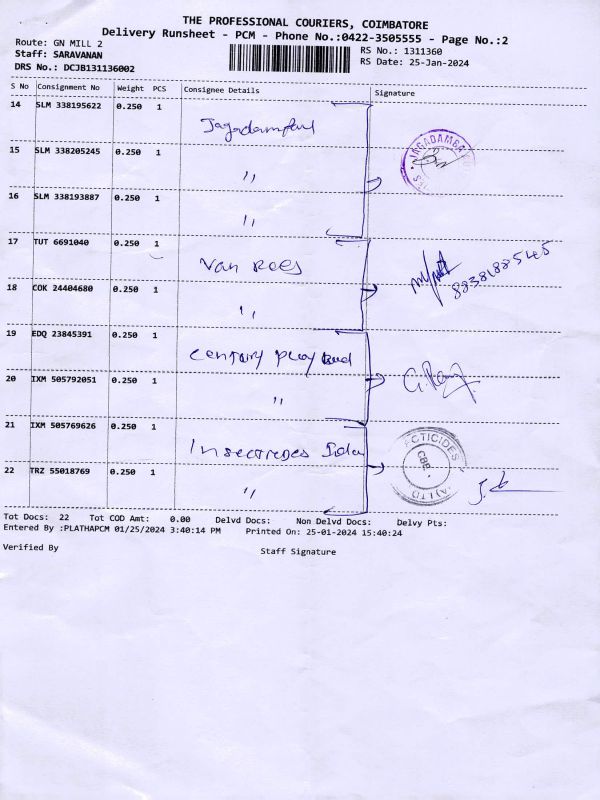 THE PROFESSIONAL COURIERS, COIMBATORE
Delivery Runsheet - PCM - Phone No.:0422-3505555 - Page No.:2
Route: GN MILL 2 RS No.: 1311360
Staff: SARAVANAN RS Date: 25-Jan-2024
DRS No.: DCJB131136002
S No Consignment No Weight PCS Consignee Details Signature
14 SLM 338195622 0.250 1
15 SLM 338205245 0.250 1 JAGADAMBA
,,
16 SLM 338193887 0.250 1
,,
17 TUT 6691040 0.250 1
Van Rees 8838188545
18 COK 24404680 0.250 1
,,
19 EDQ 23845391 0.250 1
Century Ply
20 IXM 505792051 0.250 1
,,
21 IXM 505769626 0.250 1
CTICIDES
CBE.
22 TRZ 55018769 0.250 1
,, LTD
Tot Docs: 22 Tot COD Amt: 0.00 Delvd Docs: Non Delvd Docs: Delvy Pts:
Entered By :PLATHAPCM 01/25/2024 3:40:14 PM Printed On: 25-01-2024 15:40:24
Verified By Staff Signature